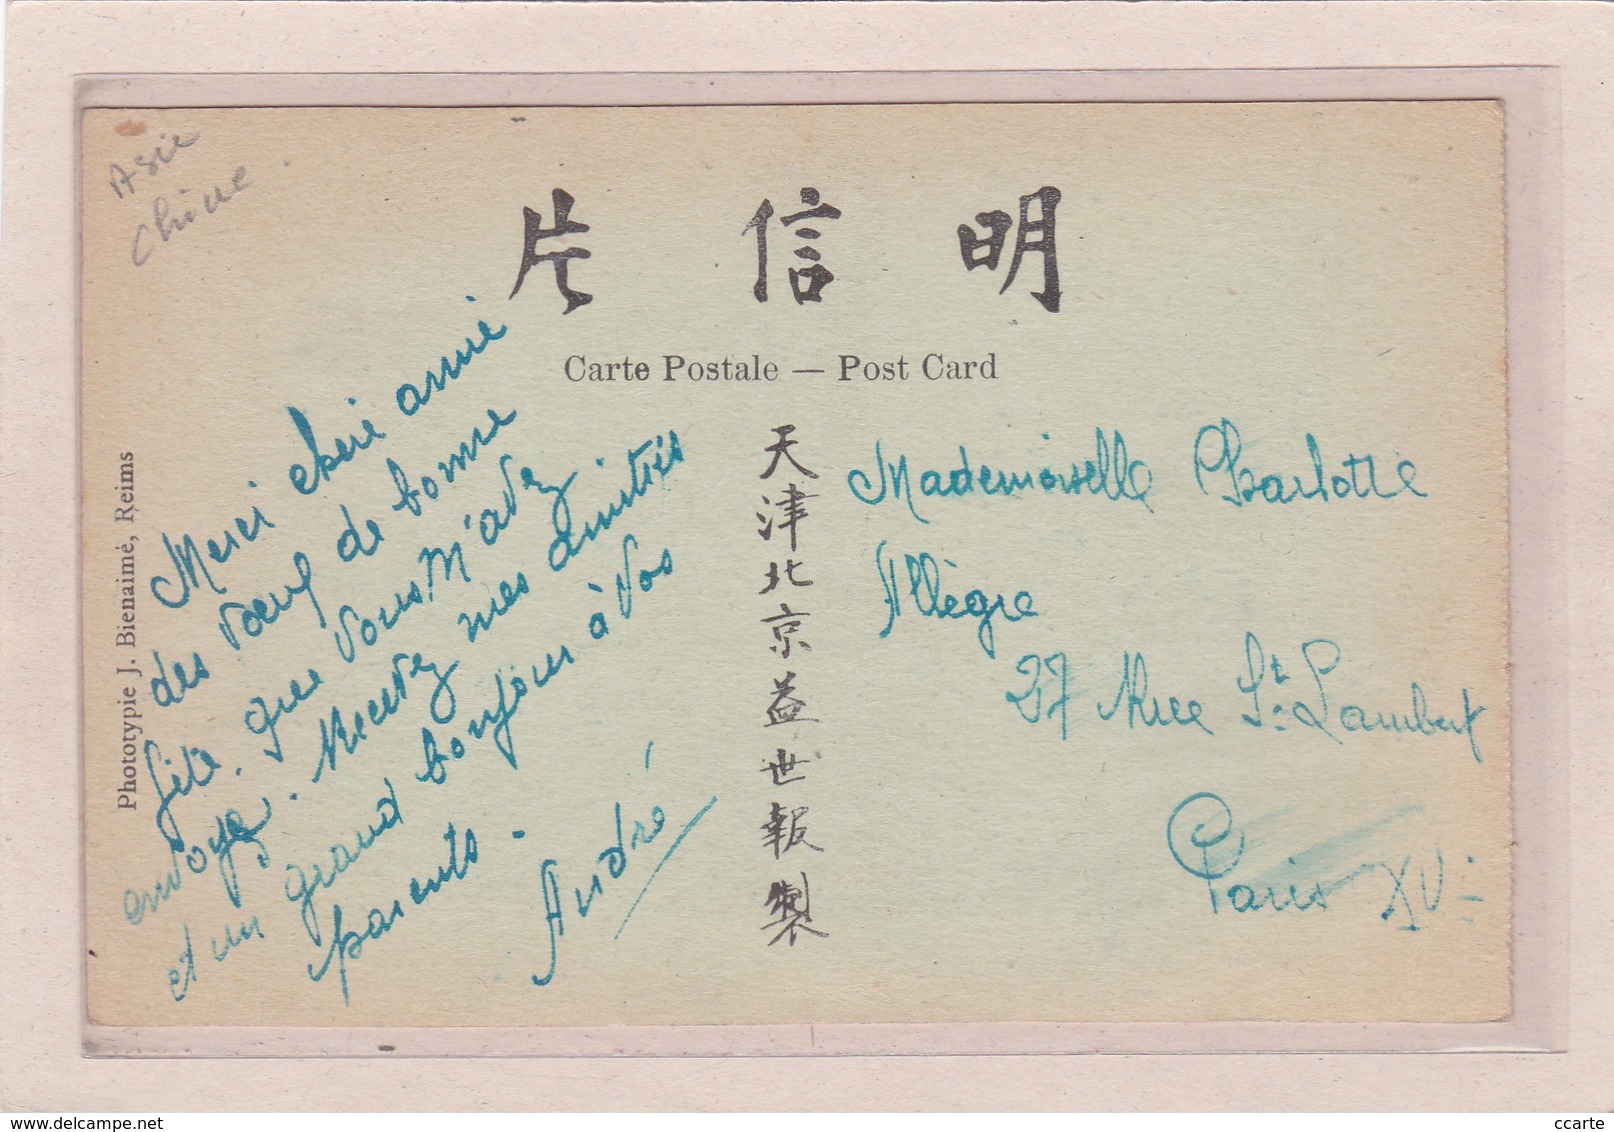 Asie
Chine
片 信 明
Carte Postale — Post Card
Merci chère amie
des vœux de bonne
fête. que vous m'avez
envoyé. Recevez mes amitiés
et un grand bonjour à vos
parents.
André
天津北京益世報製
Mademoiselle Charlotte
Allègre
27 Rue St. Lambert
Paris XV
Phototypie J. Bienaimé, Reims
delcampe.net
ccarte